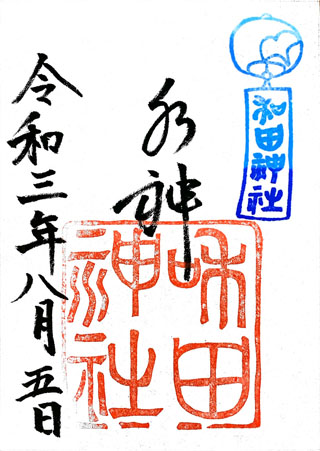 和田神社
水神
和田神社
令和三年八月五日